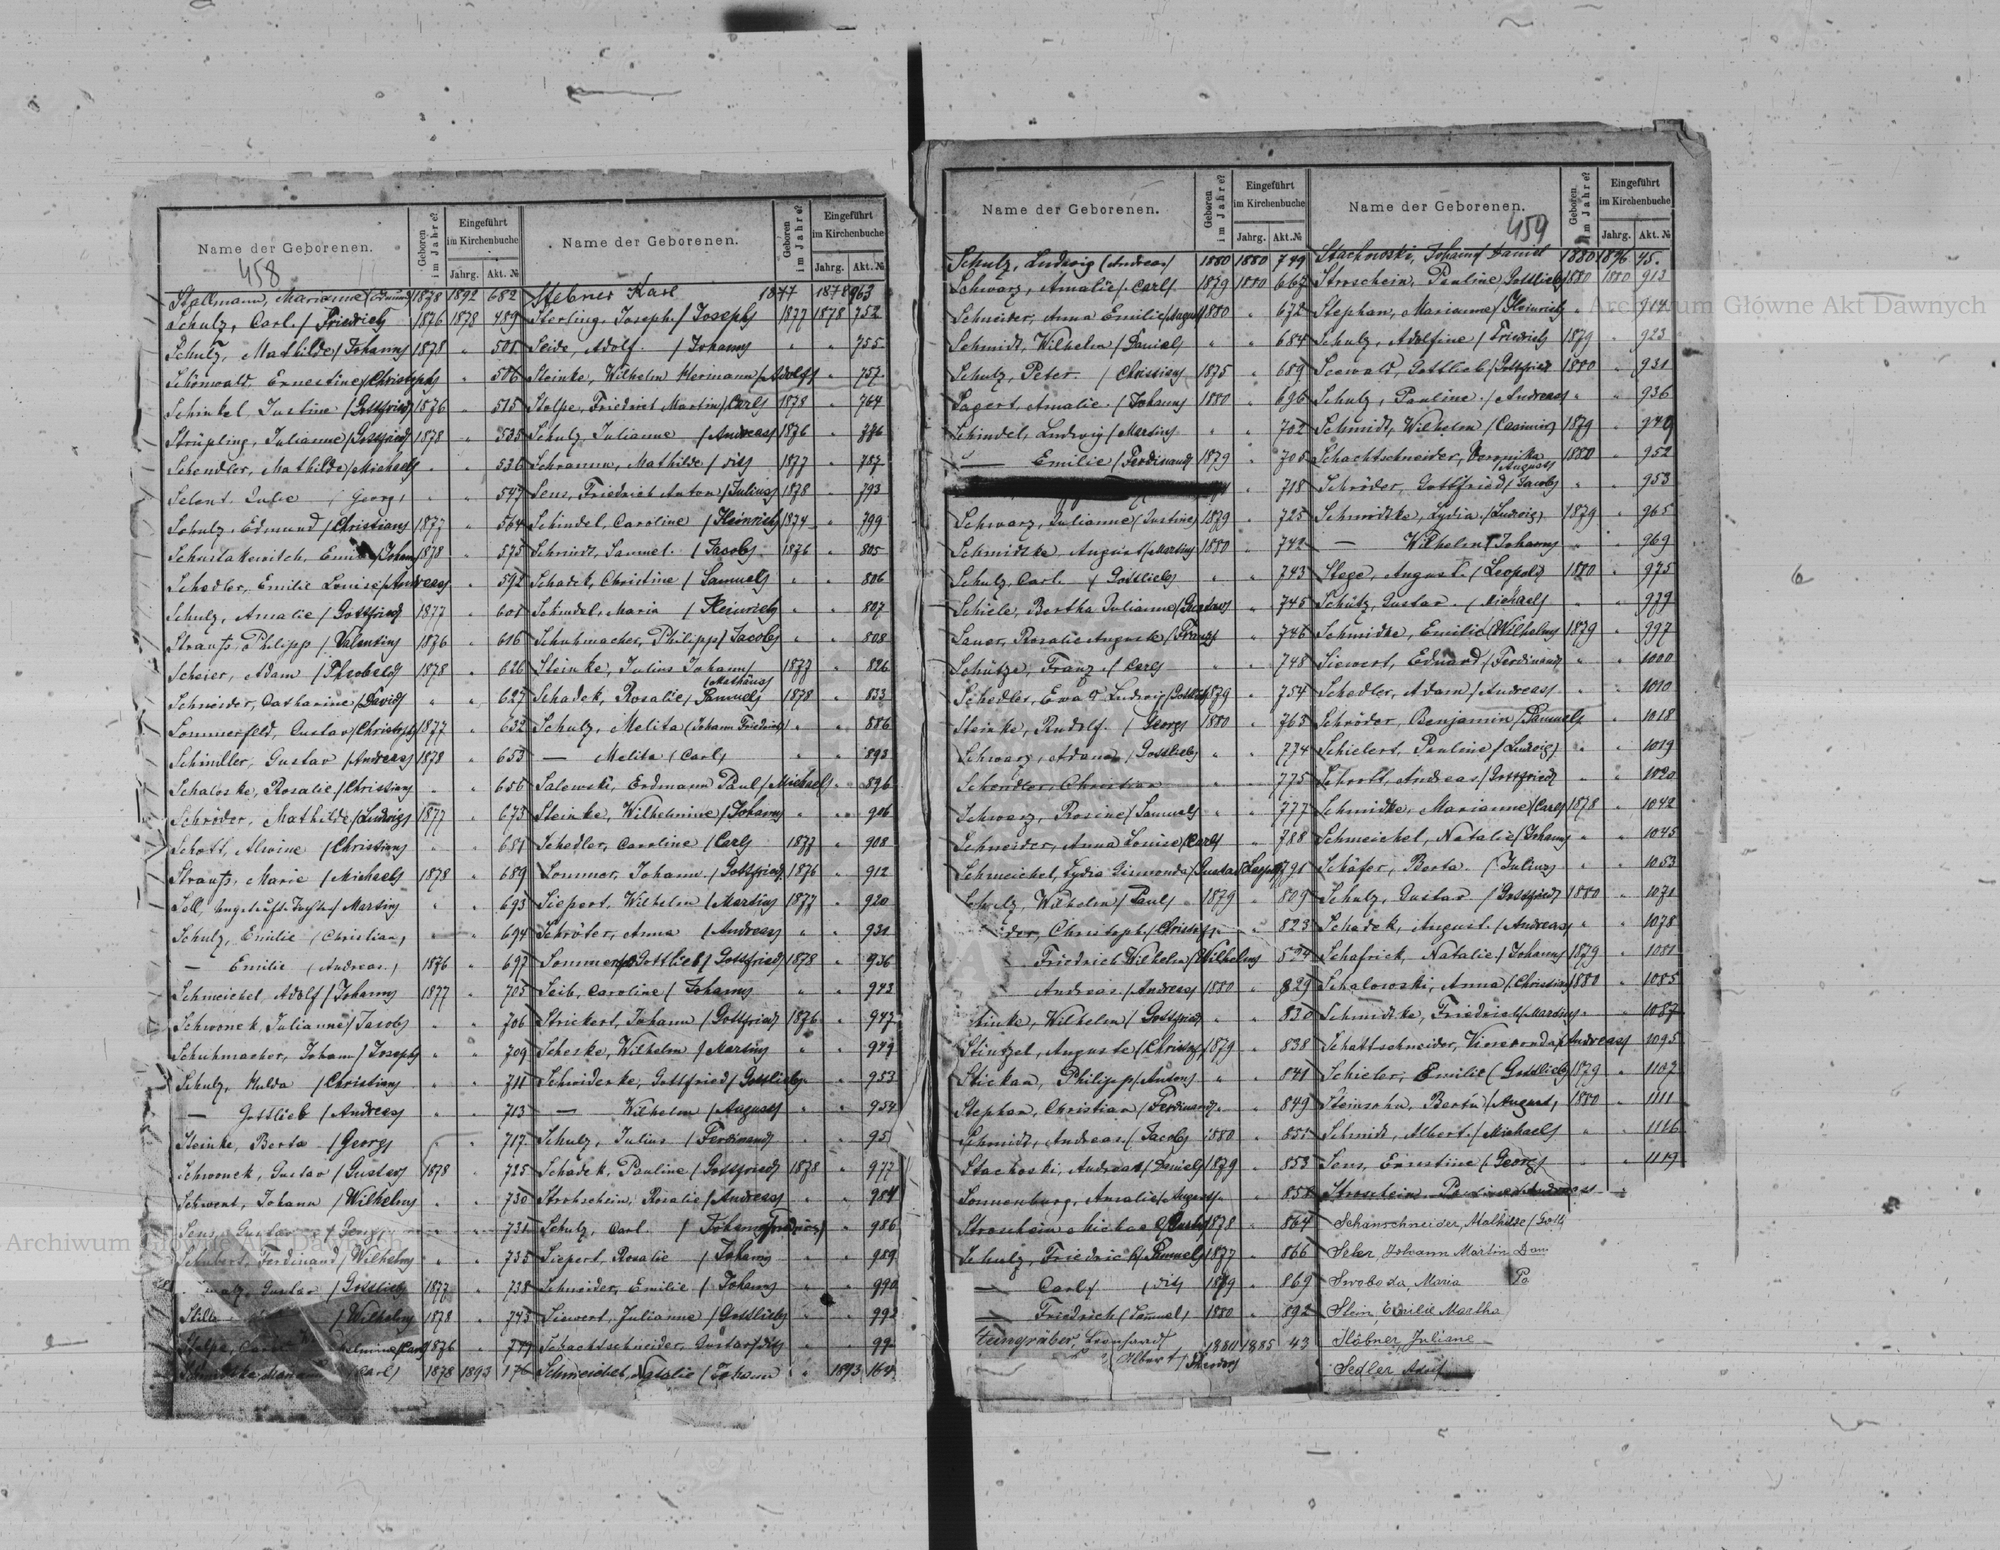 Name der Geborenen.
458
Geboren im Jahre?
Eingeführt im Kirchenbuche
Jahrg. Akt. №
Stallmann, Marianne (Edmund) 1878 1892 682
Schulz, Carl / Friedrich 1876 1878 489
Schulz, Mathilde / Johann 1878 " 501
Schönwald, Ernestine / Christoph " 506
Schinkel, Justine / Gottfried 1876 " 515
Strüpling, Julianne / Gottfried 1878 " 535
Schendler, Mathilde / Michael " " 536
Selent, Julie / Georg " " 547
Schulz, Edmund / Christian 1877 " 564
Schustakewitch, Emil / Johann 1878 " 575
Schedler, Emilie Louise / Andreas " 592
Schulz, Amalie / Gottfried 1877 " 601
Strauß, Philipp / Valentin 1876 " 616
Scheier, Adam / 1878 " 626
Schneider, Catharine / David " " 627
Sommerfeld, Gustav / Christoph 1877 " 632
Schindler, Gustav / Andreas 1878 " 653
Schaloske, Rosalie / Christian " " 656
Schröder, Mathilde / Ludwig 1877 " 673
Schott, Alwine / Christian " " 681
Strauß, Marie / Michael 1878 " 689
Sell, / Martin " " 693
Schulz, Emilie / Christian " " 694
— Emilie / Andreas 1876 " 697
Schmeichel, Adolf / Johann 1877 " 705
Schwonek, Julianne / Jacob " " 706
Schuhmacher, Johann / Joseph " " 709
Schulz, Hulda / Christian " " 711
— Gottlieb / Andreas " " 713
Steinke, Berta / Georg " " 717
Schwonek, Gustav / Gustav 1878 " 725
Siewert, Johann / Wilhelm " " 730
Sens, Gustav / Georg " " 731
Schubert, Ferdinand / Wilhelm " " 735
Gustav / Gottlieb 1877 " 738
/ Wilhelm 1878 " 743
Stolpe, / Carl 1876 " 749
/ Carl 1878 1893 176
Name der Geborenen.
Geboren im Jahre?
Eingeführt im Kirchenbuche
Jahrg. Akt. №
Stebner Karl 1877 1878 963
Sterling, Joseph / Joseph 1877 1878 752
Seide, Adolf / Johann " " 755
Steinke, Wilhelm Hermann / Adolf " 757
Stolpe, Friedrich Martin / Carl 1878 " 764
Schulz, Julianne / Andreas 1876 " 776
Schramm, Mathilde / dito 1877 " 787
Sens, Friedrich Anton / Julius 1878 " 793
Schindel, Caroline / Heinrich 1874 " 799
Schmidt, Samuel / Jacob 1876 " 805
Schadek, Christine / Samuel " " 806
Schindel, Maria / Heinrich " " 807
Schuhmacher, Philipp / Jacob " " 808
Steinke, Julius Johann 1877 " 826
(Mathäus)
Schadek, Rosalie / Samuel 1878 " 833
Schulz, Melita (Johann Friedrich) " " 886
— Melita (Carl) " " 893
Salewski, Erdmann Paul / Michael " 896
Steinke, Wilhelmine / Johann " " 906
Schedler, Caroline / Carl 1877 " 908
Sommer, Johann / Gottfried 1876 " 912
Siepert, Wilhelm / Martin 1877 " 920
Schröter, Anna / Andreas " " 931
Sommer, Gottlieb / Gottfried 1878 " 936
Seib, Caroline / Johann " " 942
Strickert, Johann / Gottfried 1876 " 947
Scheske, Wilhelm / Martin " " 949
Schwiderke, Gottfried / Gottlieb " " 953
— Wilhelm / August " " 954
Schulz, Julius / Ferdinand " " 95
Schadek, Pauline / Gottfried 1878 " 977
Strohschein, Rosalie / Andreas " " 984
Schulz, Carl / Johann Friedrich " 986
Siepert, Rosalie / Johann " " 989
Schneider, Emilie / Johann " " 990
Siewert, Julianne / Gottlieb " " 992
Schachtschneider, Gustav / dito " " 99
Schmeichel, Natalie / Johann " 1893 164
Name der Geborenen.
Geboren im Jahre?
Eingeführt im Kirchenbuche
Jahrg. Akt. №
Schulz, Ludwig (Andreas) 1880 1880 749
Schwarz, Amalie / Carl 1879 1880 667
Schneider, Anna Emilie / August 1880 " 672
Schmidt, Wilhelm / Daniel " " 684
Schulz, Peter / Christian 1875 " 689
Sagert, Amalie / Johann 1880 " 696
Schindel, Ludwig / Martin " " 702
— Emilie / Ferdinand 1879 " 705
" 718
Schwarz, Julianne / Justine 1879 " 725
Schmidtke, August / Martin 1880 " 742
Schulz, Carl / Gottlieb " " 743
Schiele, Bertha Julianne / Gustav " 745
Sauer, Rosalie Auguste / Franz " 746
Schütze, Franz / Carl " " 748
Schedler, Eva & Ludwig / Gottlieb 1879 " 754
Steinke, Rudolf / Georg 1880 " 765
Schwarz, Adam / Gottlieb " " 774
Schendler, Christian " " 775
Schwarz, Rosine / Samuel " " 777
Schneider, Anna Louise / Carl " 788
Schmeichel, Lydia / Gustav 791
Schulz, Wilhelm / Paul 1879 " 809
der, Christoph / Christof " 823
Friedrich Wilhelm / Wilhelm 824
Andreas / Andreas 1880 " 829
inke, Wilhelm / Gottfried " " 830
Stintzel, Auguste / Christof 1879 " 838
Stickan, Philipp / Anton " " 841
Stephan, Christian / Ferdinand " " 849
Schmidt, Andreas / Jacob 1880 " 851
Stachoski, Andreas / Daniel 1879 " 853
Sonnenburg, Amalie / August " " 858
Stroschein, / 1878 " 864
Schulz, Friedrich / Samuel 1877 " 866
— Carl / dito 1879 " 869
— Friedrich (Samuel) 1880 " 892
Steingräber, Leonhardt 1884 1885 43
Albert / Theodor
Name der Geborenen.
459
Geboren im Jahre?
Eingeführt im Kirchenbuche
Jahrg. Akt. №
Stachowski, Johann / Daniel 1880 1896 45.
Stroschein, Pauline / Gottlieb 1880 1880 913
Stephan, Marianne / Heinrich " " 914
Schulz, Adolfine / Friedrich 1879 " 923
Seewald, Gottlieb / Gottfried 1880 " 931
Schulz, Pauline / Andreas " " 936
Schmidt, Wilhelm / Casimir 1879 " 940
Schachtschneider, Veronika 1880 " 952
/ August
Schröder, Gottfried / Jacob " " 953
Schmidtke, Lydia / Ludwig 1879 " 965
— Wilhelm / Johann " " 969
Stege, August / Leopold 1880 " 975
Schütz, Gustav / Michael " " 979
Schmidke, Emilie / Wilhelm 1879 " 997
Siewert, Eduard / Ferdinand " " 1000
Schedler, Adam / Andreas " " 1010
Schröder, Benjamin / Samuel " 1018
Schielert, Pauline / Ludwig " " 1019
Schrott, Andreas / Gottfried " " 1020
Schmidke, Marianne / Carl 1878 " 1042
Schmeichel, Natalie / Johann " " 1045
Schäfer, Berta / Julius " " 1053
Schulz, Gustav / Gottfried 1880 " 1071
Schadek, August / Andreas " " 1078
Schafrick, Natalie / Johann 1879 " 1081
Schalowski, Anna / Christian 1880 " 1085
Schmidtke, Friedrich / Martin " " 1087
Schattschneider, / Andreas 1095
Schieler, Emilie (Gottlieb) 1879 " 1107
Steinsohn, Berta / August 1880 " 1111
Schmidt, Albert / Michael " " 1116
Sens, Ernstine (Georg) " " 1119
Schanschneider, Mathilde / Gott
Seler, Johann Martin Dan
Swoboda, Maria
Stein, Emilie Martha
Stöbner, Juliane
Sedler Adolf
Archiwum Główne Akt Dawnych
Archiwum Główne Akt Dawnych